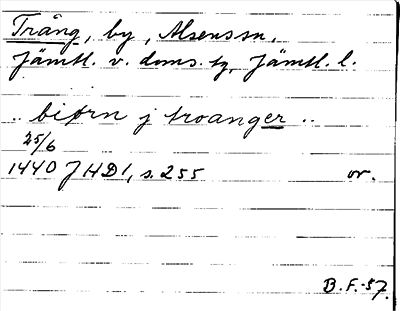 Trång, by, Alsens sn,
Jämtl. v. doms. tg, Jämtl. l.
.. biørn j troanger ..
25/6
1440 JHD1, s. 255 or.
B.F.-57.